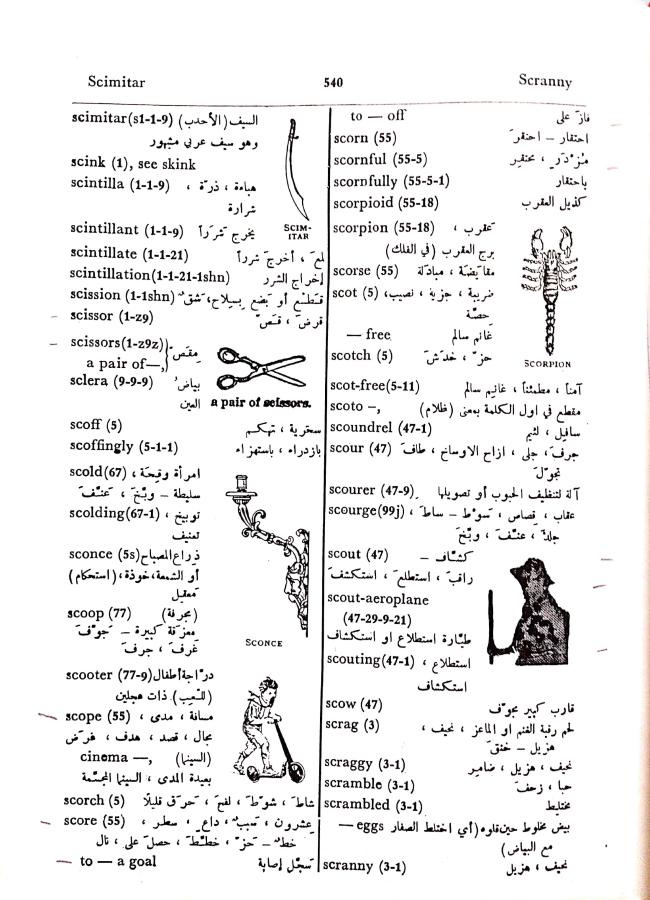 Scimitar 540 Scranny
scimitar(s1-1-9) السيف (الأحدب)
وهو سيف عربي مشهور
scink (1), see skink
scintilla (1-1-9) هباءة ، ذرّة ،
شرارة
scintillant (1-1-9) يخرج شرراً
SCIM-
ITAR
scintillate (1-1-21) لمعَ ، أخرج شرراً
scintillation(1-1-21-1shn) إخراج الشرر
scission (1-1shn) قطع أو بَضع بسلاح، شق
scissor (1-z9) قرضَ ، قصّ
scissors(1-z9z) مِقَصّ
a pair of—,
sclera (9-9-9) بياض
العين
a pair of scissors.
scoff (5) سخرية ، تهكم
scoffingly (5-1-1) بازدراء ، باستهزاء
scold(67) امرأة وقحة ،
سليطة – وبّخَ ، عنّفَ
scolding(67-1) توبيخ ،
تعنيف
sconce (5s) ذراع المصباح
أو الشمعة، خوذة، (استحكام)
معقل
scoop (77) (مجرفة)
مغرفة كبيرة – جوّفَ
غرفَ ، جرفَ
SCONCE
scooter (77-9) درّاجة أطفال
(للّعِب) ذات عجلتين
scope (55) مسافة ، مدى ،
مجال ، قصد ، هدف ، غرض
cinema —, (السينما)
بعيدة المدى ، السينما المجسّمة
scorch (5) شاطَ ، شوّطَ ، لفحَ ، حرّق قليلاً
score (55) عشرون ، سبب ، داع ، سطر ،
خطّ – حزّ ، خطّط ، حصل على ، نال
to — a goal سجّل إصابة
to — off فازَ على
scorn (55) احتقار – احتقرَ
scornful (55-5) مُزدرٍ ، محتقِر
scornfully (55-5-1) باحتقار
scorpioid (55-18) كذيل العقرب
scorpion (55-18) عقرب ،
برج العقرب (في الفلك)
scorse (55) مقايَضة ، مبادَلة
scot (5) ضريبة ، جزية ، نصيب،
حصّة
— free غانم سالم
scotch (5) حزّ ، خدشَ
SCORPION
scot-free(5-11) آمناً ، مطمئناً ، غانم سالم
scoto –, مقطع في اول الكلمة بمعنى (ظلام)
scoundrel (47-1) سافل ، لئيم
scour (47) جرفَ، جلى ، ازاح الاوساخ ، طافَ
تجوّل
scourer (47-9) آلة لتنظيف الحبوب أو تصويلها
scourge(99j) عقاب ، قصاص ، سَوط – ساطَ ،
جلدَ ، عنّفَ ، وبّخَ
scout (47) كشّاف –
راقبَ ، استطلعَ ، استكشفَ
scout-aeroplane
(47-29-9-21)
طيّارة استطلاع او استكشاف
scouting(47-1) استطلاع ،
استكشاف
scow (47) قارب كبير مجوّف
scrag (3) لحم رقبة الغنم او الماعز ، نحيف ،
هزيل – خنقَ
scraggy (3-1) نحيف ، هزيل ، ضامر
scramble (3-1) حبا ، زحفَ
scrambled (3-1) مختلِط
— eggs بيض مخلوط حين قلوه (أي اختلط الصفار
مع البياض)
scranny (3-1) نحيف ، هزيل